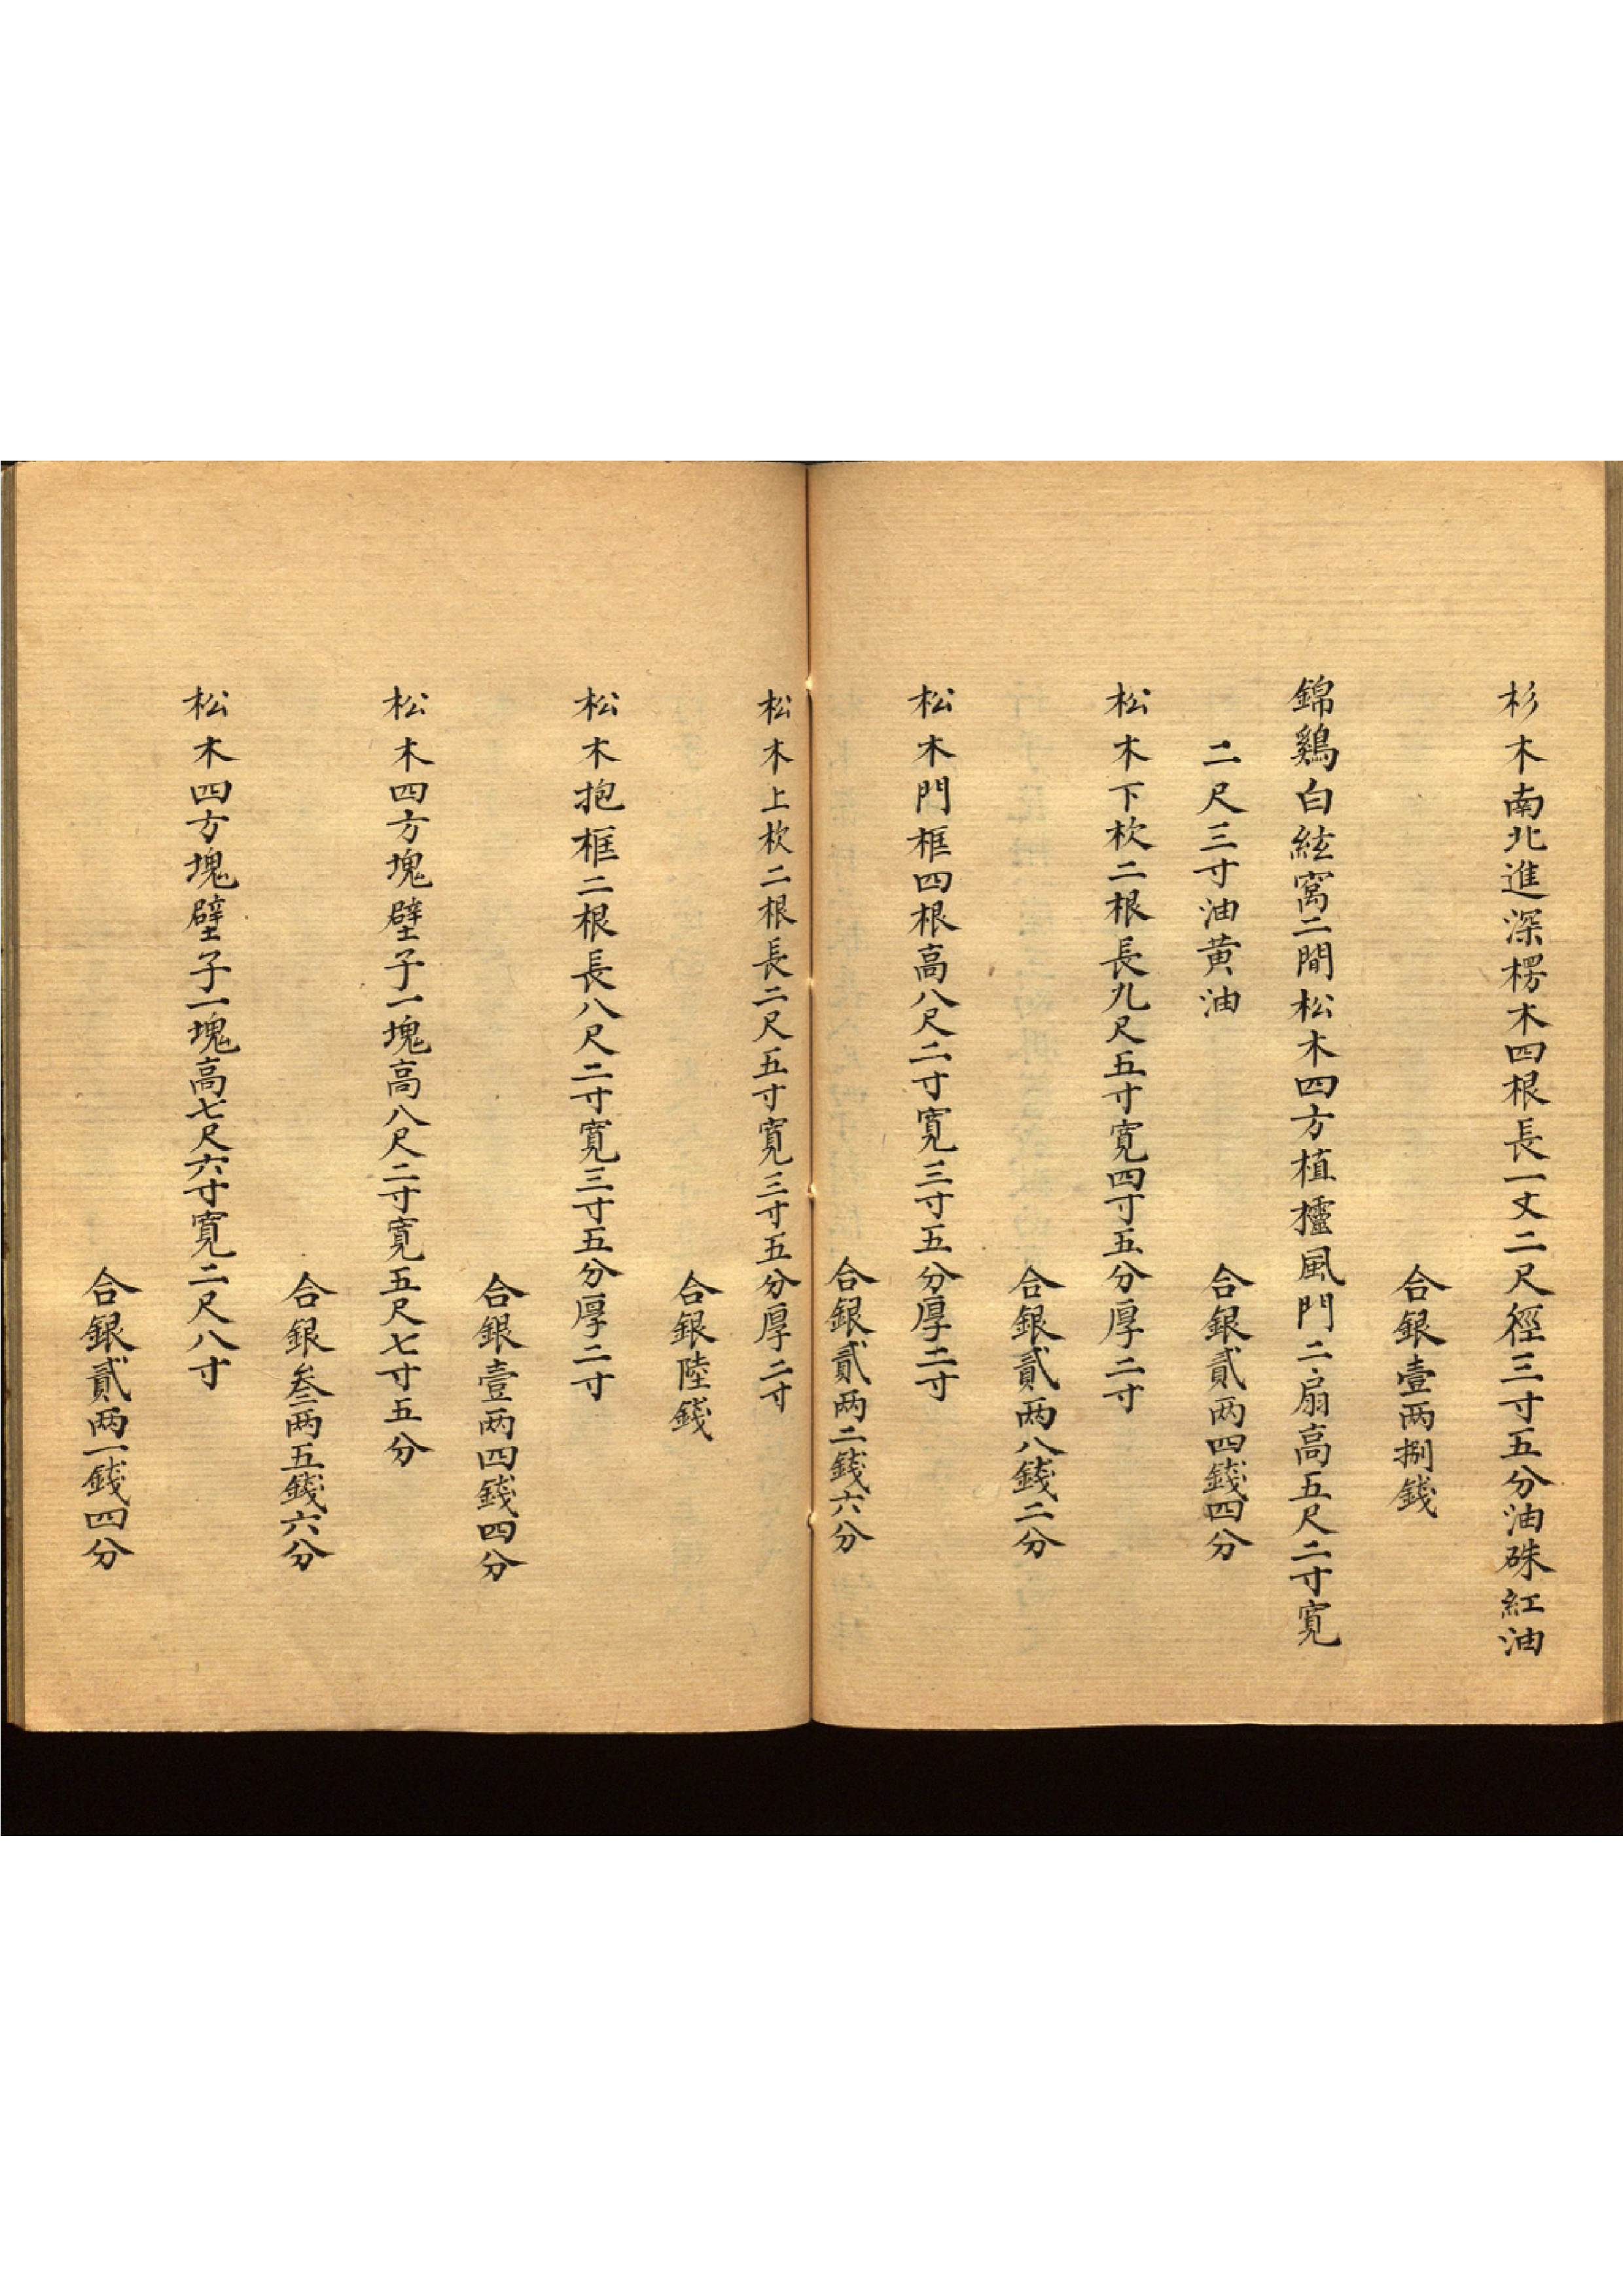 杉木南北進深楞木四根長一丈二尺徑三寸五分油硃紅油
合銀壹两捌錢
錦鷄白絃窩二間松木四方植櫨風門二扇高五尺二寸寬
二尺三寸油黄油
合銀貳两四錢四分
松木下枕二根長九尺五寸寬四寸五分厚二寸
合銀貳两八錢二分
松木門框四根高八尺二寸寬三寸五分厚二寸
合銀貳两二錢六分
松木上枕二根長二尺五寸寬三寸五分厚二寸
合銀陸錢
松木抱框二根長八尺二寸寬三寸五分厚二寸
合銀壹两四錢四分
松木四方塊壁子一塊高八尺二寸寬五尺七寸五分
合銀叁两五錢六分
松木四方塊壁子一塊高七尺六寸寬二尺八寸
合銀貳两一錢四分